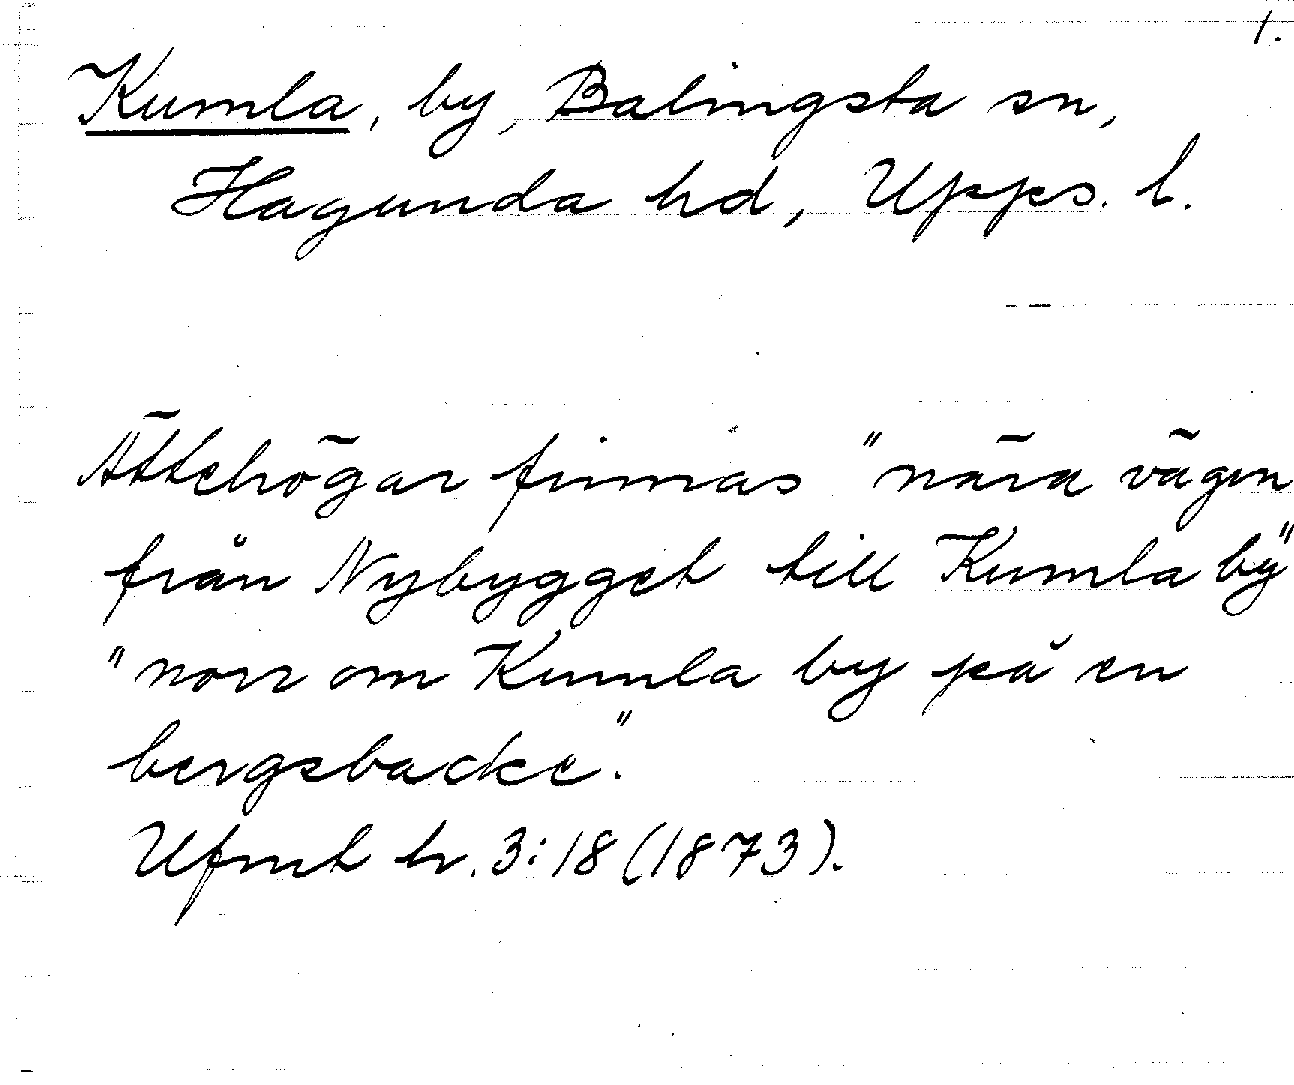 1.
Kumla, by, Balingsta sn,
Hagunda hd, Upps. l.
Ättehögar finnas "nära vägen
från Nybygget till Kumla by"
"norr om Kumla by på en
bergsbacke."
Ufmt h. 3:18 (1873).